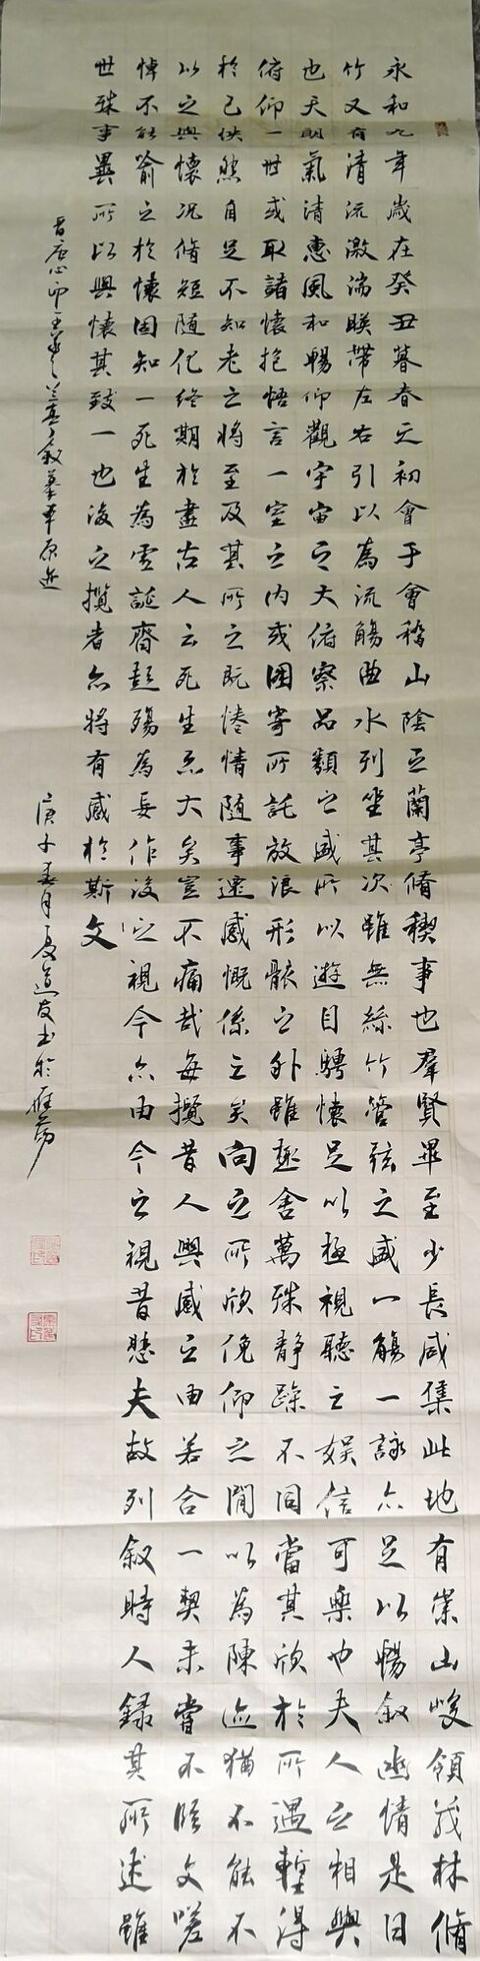 永和九年歲在癸丑暮春之初會于會稽山陰之蘭亭脩稧事也羣賢畢至少長咸集此地有崇山峻領茂林脩
竹又有清流激湍暎帶左右引以為流觴曲水列坐其次雖無絲竹管弦之盛一觴一詠亦足以暢叙幽情是日
也天朗氣清惠風和暢仰觀宇宙之大俯察品類之盛所以遊目騁懷足以極視聽之娛信可樂也夫人之相與
俯仰一世或取諸懷抱悟言一室之內或因寄所託放浪形骸之外雖趣舍萬殊静躁不同當其欣於所遇蹔得
於己怏然自足不知老之將至及其所之既惓情随事遷感慨係之矣向之所欣俛仰之閒以為陳迹猶不能不
以之興懷況脩短随化終期於盡古人云死生亦大矣豈不痛哉每攬昔人興感之由若合一契未嘗不臨文嗟
悼不能喻之於懷固知一死生為虛誕齊彭殤為妄作後之視今亦由今之視昔悲夫故列叙時人録其所述雖
世殊事異所以興懷其致一也後之攬者亦將有感於斯文
庚子春月夏道友书於雁荡